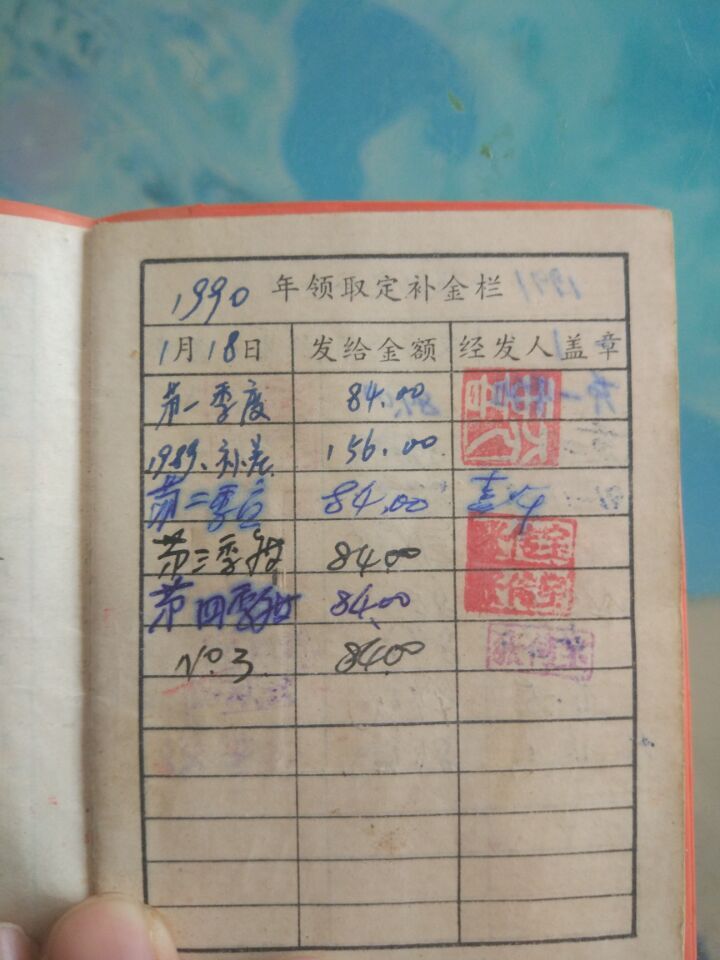 1990 年领取定补金栏
1月18日 发给金额 经发人盖章
第一季度 84.00
1989.补差 156.00
第二季度 84.00
第三季度 84.00
第四季度 84.00
No.3 84.00